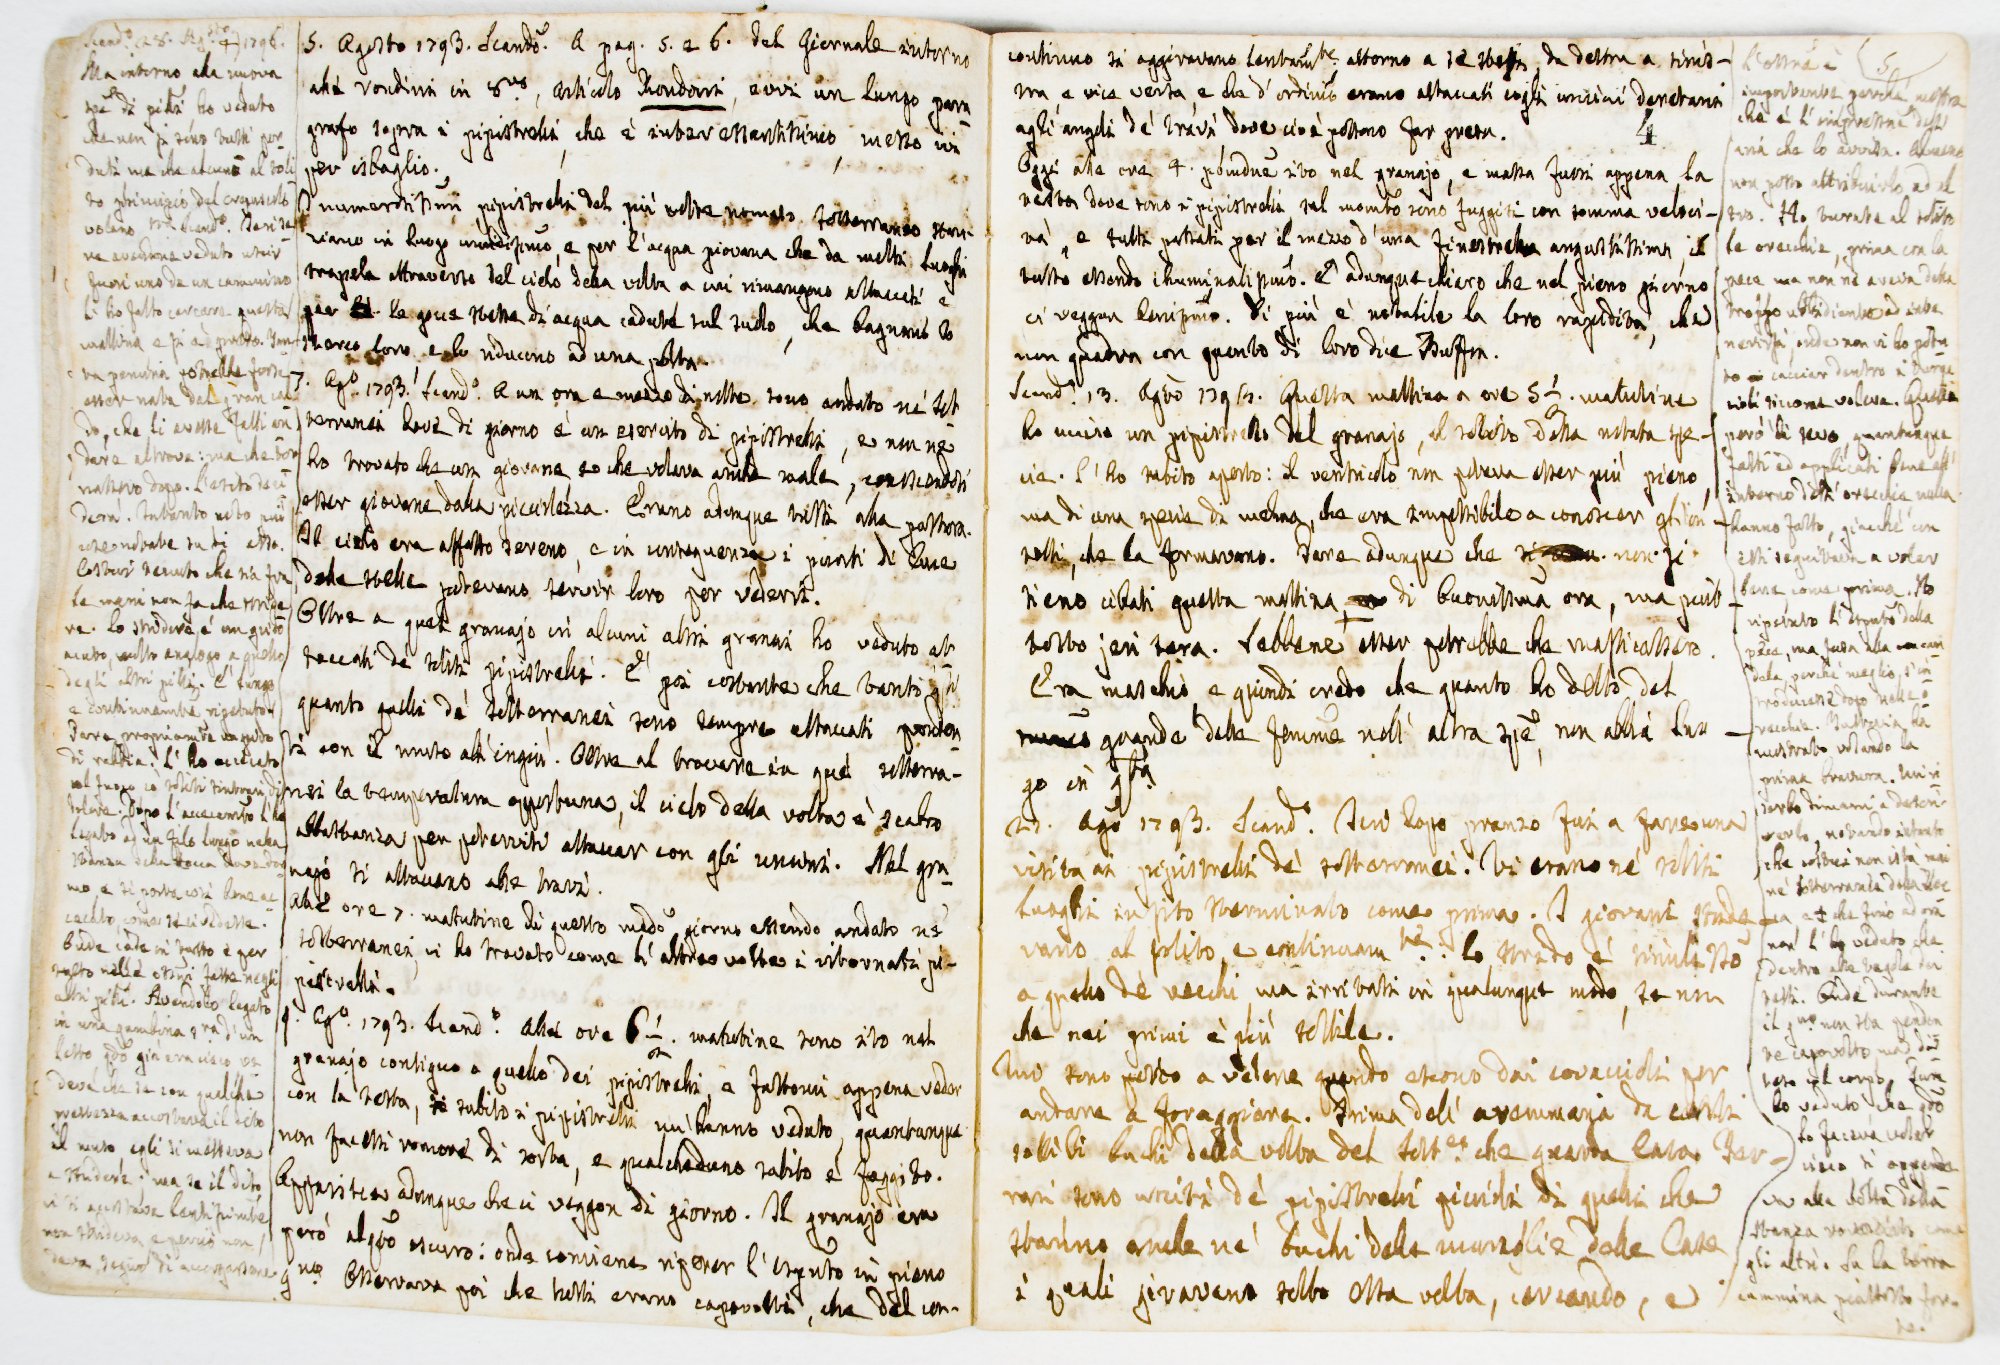 Scand.º 28. Ag.sto 1794.
Ma intorno alla nuova
spe di pipi ho veduto
che non si sono tutti per
duti ma che alcuno al soli
to principio del crepuscolo
volano
ne veduto uscir
fuori uno da un cammino
li ho fatto cercare questa
mattina e
esser nata dal gran cal
do, che li avesse fatti an
dare altrove: ma che tor
natvero dopo. L'esito deci
derà. Intanto noto più
cose notate su di esso.
tenuto che sia fra
le mani non fa che stride
re. Lo stridere è un grido
acuto, molto analogo a quello
degli altri pipi. È lungo
e continuamte ripetuto.
Pare propriamte un grido
di rabbia. L'ho acciecato
col fuoco co' soliti
Dopo l'accecamto l'ho
legato ad un filo lungo nella
stanza della rocca
mo, e si porta così bene ac
cecato, come se ci vedesse.
in tutto e per
tutto nelle fatte negli
altri pipi. Avendolo legato
in una gambina d'un
letto già era cieco ve
deva che se con qualche
prestezza accostava il dito
al muso, egli si metteva
a stridere: ma se il dito
vi si accostava lentissimte
non strideva e perciò non
dava segno di accorgersene
5. Agosto 1793. Scandº. A pag. 5. e 6. del Giornale intorno
alle rondini in 8vo, articolo Rondoni, evvi un lungo para
grafo sopra i pipistrelli, che è interessantissimo, messo ivi
per isbaglio.
I numerosissimi pipistrelli del più volte nomato sotterraneo stan-
ziano in luogo umidissimo, e per l'acqua piovana che da molti luoghi
trapela attraverso del cielo della volta a cui rimangono attaccati e
per le goce stesse di acqua cadute sul suolo, che bagnano lo
sterco loro, e lo riducono ad una polta.
7. Agº. 1793. Scandº. A un ora e mezzo di notte sono andato ne' sot
terranei dove di giorno è un esercito di pipistrelli, e non ne
ho trovato che un giovane so che volava anche male, conoscendosi
esser giovane dalla picciolezza. Erano adunque usciti alla pastura.
Il cielo era affatto sereno, e in conseguenza i punti di luce
delle stelle potevano servir loro per vederci.
Oltre a quel granajo in alcuni altri granai ho veduto at
taccati de' soliti pipistrelli. È poi costante che tanto gli
quanto quelli de' sotterranei sono sempre attaccati penden-
ti con il muso all'ingiù. Oltre al trovare in que' sotterra-
nei la temperatura opportuna, il cielo della volta è scabro
abbastanza per potervisi attaccar con gli uncini. Nel gra
najo si attaccano alle travi.
Alle ore 7. matutine di questo medº giorno essendo andato ne'
sotterranei, vi ho trovato come l'altre volte i ritornati pi-
pistrelli.
9. Agº. 1793. Scandº. Alle ore 6 1/2. matutine sono ito nel
granajo contiguo a quello dei pipistrelli, e fattomi appena veder
con la testa, subito i pipistrelli mi hanno veduto, quantunque
non facessi romore di sorta, e qualcheduno subito è fuggito.
Apparisce adunque che ci veggon di giorno. Il granajo era
però alqto oscuro: onde conviene ripeter l'esperto in pieno
gno. Osservava poi che tutti erano capovolti, che del con-
5
4
continuo si aggiravano lentamte attorno a se stessi, da destra a sinis-
tra, e vice versa, e che d'ordino erano attaccati cogli uncini deretani
agli angoli de' travi dove cioè possono far presa.
Oggi alle ore 4. pomdne ito nel granajo, e messa fuori appena la
testa dove sono i pipistrelli sul momto sono fuggiti con somma veloci-
tà, e tutti passati per il mezzo d'una finestrella angustissima il
tutto essendo illuminatissimo. È adunque chiaro che nel pieno giorno
ci veggon benissimo. Di più è notabile la loro rapidità, che
non quadra con quanto di loro dice Buffon.
Scandº. 13. Agto 1793. Questa mattina a ore 5 1/2. matutine
ho ucciso un pipistrello del granajo, al solito della notata spe-
cie. L'ho subito aperto: il ventricolo non poteva esser più pieno,
ma di una specie di melma, che era impossibile a conoscer gl'in-
setti, che la formavano. Pare adunque che non si
sieno cibati questa mattina di buonissima ora, ma piut-
tosto jeri sera. Sebbene esser potrebbe che masticassero.
Era maschio, e quindi credo che quanto ho detto del
grande delle femme nell'altra spe, non abbia luo-
go in qsta.
21. Agto 1793. Scandº. Jeri dopo pranzo fui a fare una
visita ai pipistrelli de' sotterranei. Vi erano ne' soliti
luoghi in nº sterminato come prima. I giovani stride-
vano al solito, e continuamte: lo strido è simile
a quello de' vecchi, ma irritati in qualunque modo, se non
che nei primi è più sottile.
Mi sono posto a vedere quando escono dai covaccioli per
andare a foraggiare. Prima dell'avemmaria da
soliti buchi della volta del sotto che guarda Casa Fer-
rari sono usciti de' pipistrelli piccioli di quelli che
stanno anche ne' buchi delle muraglie delle Case
i quali giravano sotto essa volta, cercando, e
L'ottne è
importante perchè mostra
che è l'impressne dell'
aria che lo avvisa. Almeno
non posso attribuirlo ad al
tro. Ho turate al solito
le orecchie, prima con la
pece ma non ne aveva della
troppo ubbidiente ed
onde non vi ho potu
to cacciar dentro i turac
cioli siccome voleva. Questi
però di sevo, quantunque
fatti ed applicati bene all'
interno dell'orecchie nulla
hanno fatto, giacchè con
essi seguitava a volar
bene come prima. Ho
ripetuto l'esperto della
pece, ma fusa alla can
dela perchè meglio s'in
troducesse dopo nelle o
recchie. Tuttavia ha
mostrato volando la
prima bravura. Mi ri
serbo dimani a descri
verlo, notando intanto
che costui non istà mai
ne' sotterranei della Roc
ca e che fino ad ora
non l'ho veduto che
dentro alle tegole dei
tetti. durante
il gno non sta penden
te capovolto, ma dis
teso col corpo,
ho veduto che
lo faceva volar
cieco si appende
va alla volta della
stanza rovesciato come
gli altri. Su la terra
cammina piuttosto for-
te.